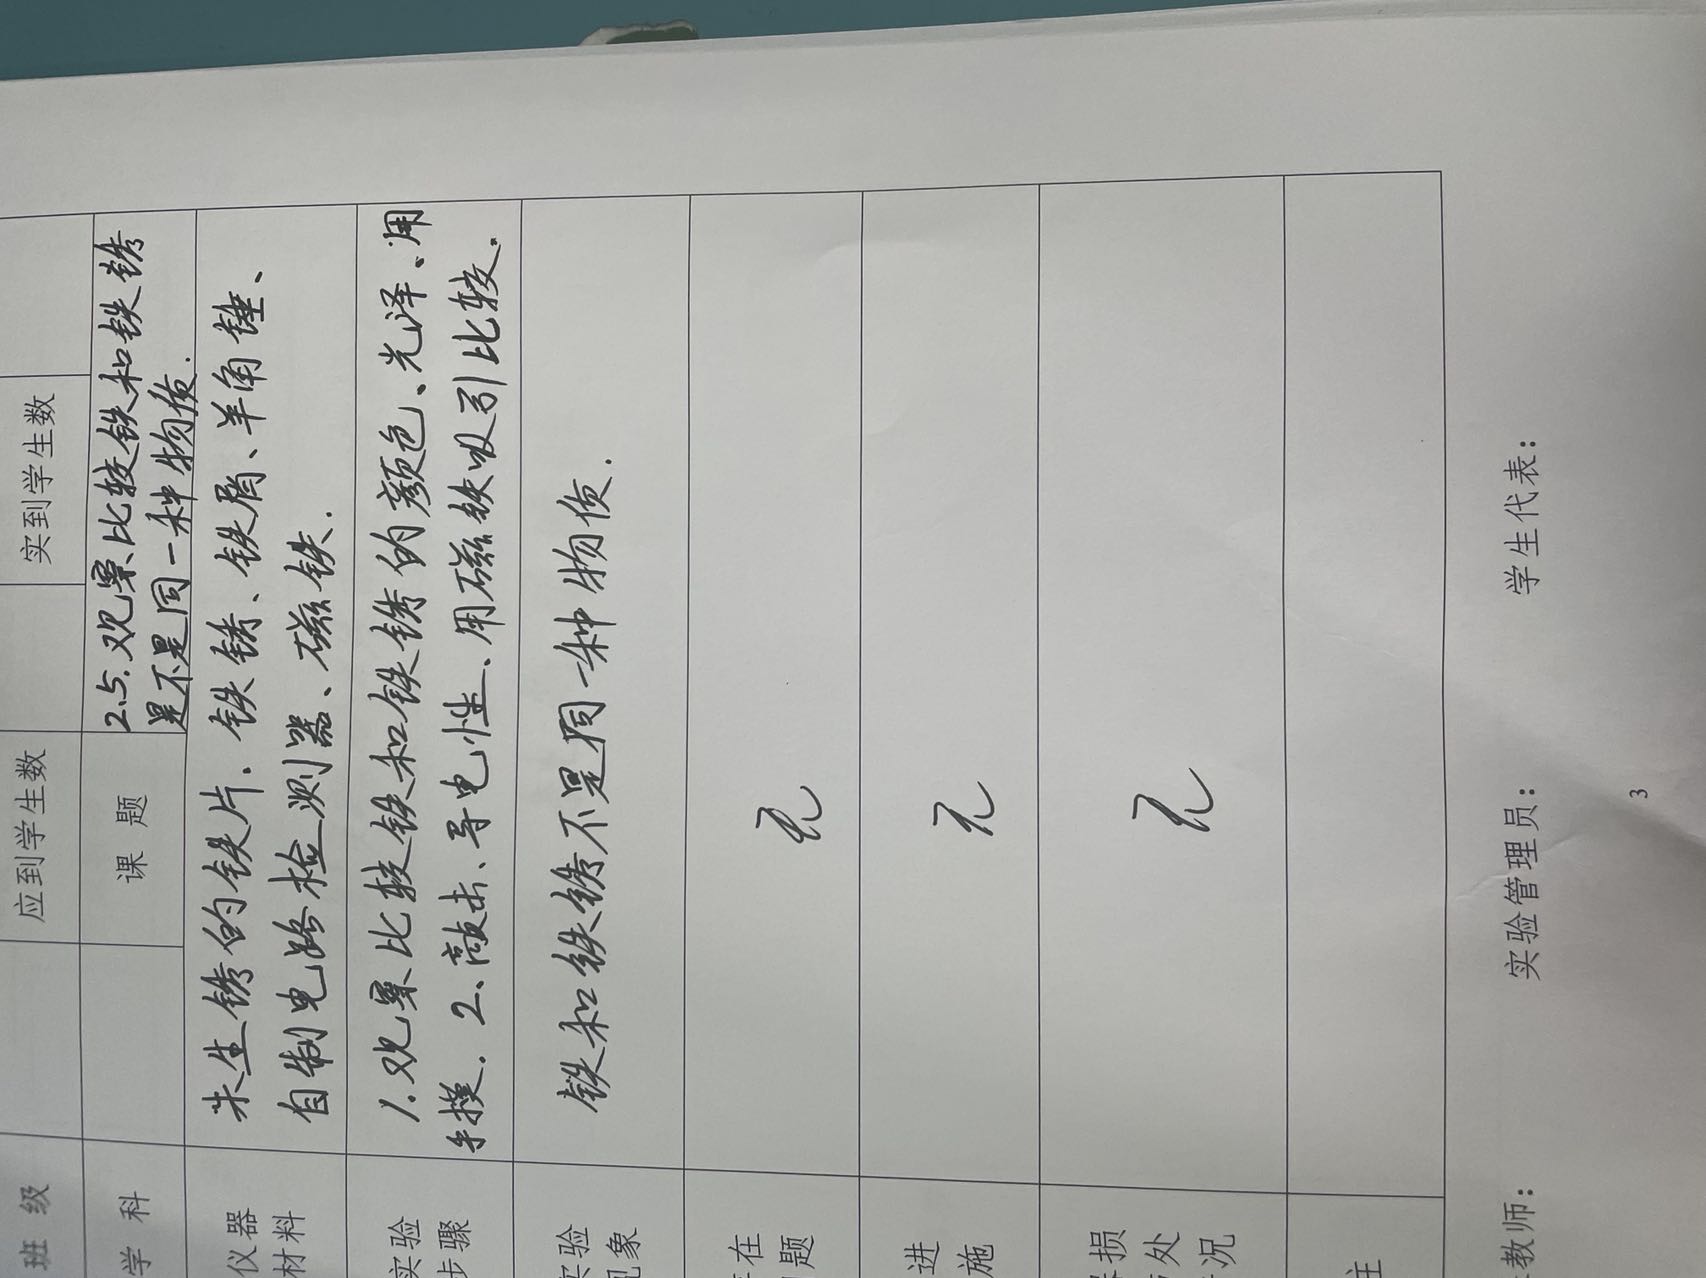 班 级
应到学生数
实到学生数
学 科
课 题
2.5.观察比较铁和铁锈
是不是同一种物质.
仪器
材料
未生锈的铁片.铁锈、铁屑、羊角锤、
自制电路检测器、磁铁.
实验
步骤
1.观察比较铁和铁锈的颜色、光泽、用
手摸.2、敲击、导电性、用磁铁吸引比较.
实验
现象
铁和铁锈不是同一种物质.
在
题
无
进
施
无
损
处
况
无
注
教师:
实验管理员:
学生代表:
3